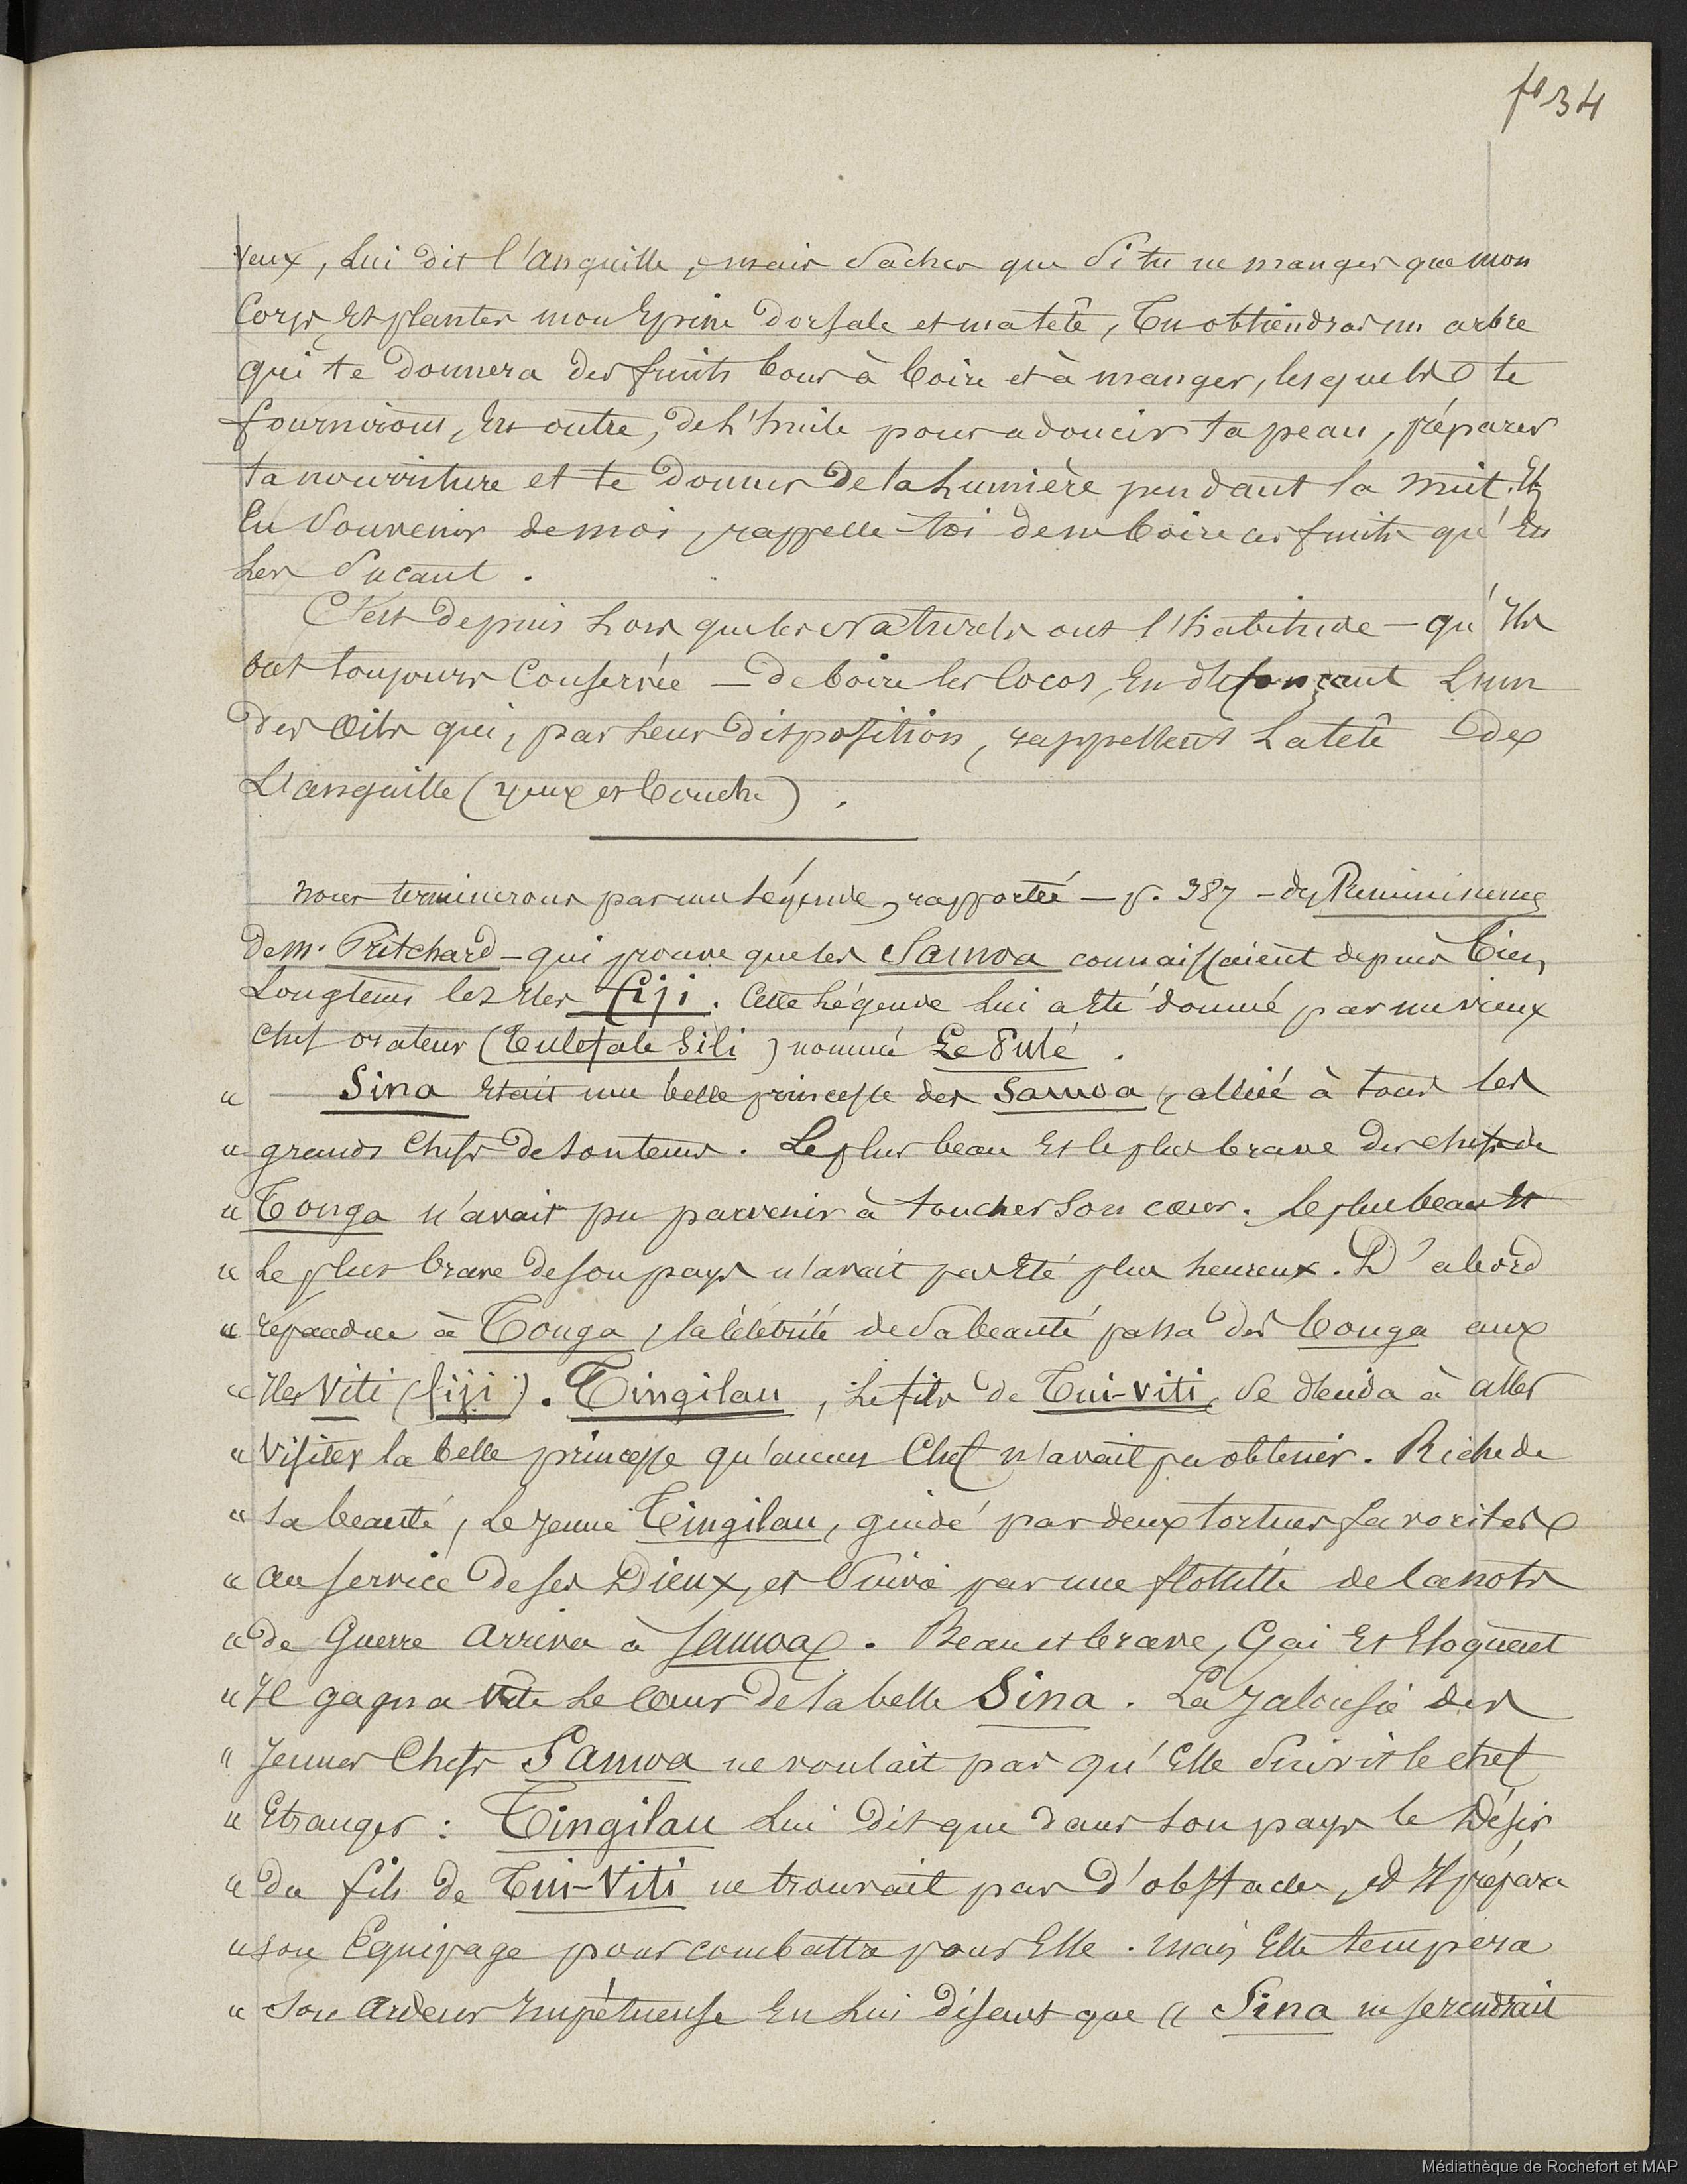 fo 34
veux, lui dit l'anguille, mais saches que si tu ne manges que mon
corps et plantes mon Epine dorsale et ma tête, tu obtiendras un arbre
qui te donnera des fruits bons à boire et à manger, lesquels te
fourniront, en outre, de l'huile pour adoucir ta peau, préparer
ta nourriture et te donner de la lumière pendant la nuit. Et
en souvenir de moi, rappelle-toi de ne boire ces fruits qu'en
les suçant.
C'est depuis lors que les naturels ont l'habitude - qu'ils
ont toujours conservée - de boire les cocos, en défonçant l'un
des œils qui, par leur disposition, rappellent la tête de
L'anguille (yeux et bouche).
Nous terminerons par une légende, rapportée - p. 387 - des Réminiscences
de M. Pritchard - qui prouve que les Samoa connaissaient depuis bien
Longtems les Iles Fiji. Cette légende lui a été donnée par un vieux
chef orateur (Tulefale Sili) nommé Le Pulé.
" — Sina était une belle princesse des Samoa, alliée à tous les
" grands chefs de son tems. Le plus beau et le plus brave des chefs de
" Tonga n'avait pu parvenir à toucher son cœur. Le plus beau et
" Le plus brave de son pays n'avait pas été plus heureux. D'abord
" répandue à Tonga, la célébrité de sa beauté passa des Tonga aux
" Iles Viti (fiji). Tingilau, le fils de Tui-Viti, se décida à aller
" Visiter la belle princesse qu'aucun Chef n'avait pu obtenir. Riche de
" sa beauté, le jeune Tingilau, guidé par deux tortues favorites
" au service de ses Dieux, et suivi par une flottille de canots
" de Guerre arriva à Samoa. Beau et brave, Gai et Eloquent
" Il gagna vite le cœur de la belle Sina. La jalousie des
" Jeunes Chefs Samoa ne voulait pas qu'elle suivit le chef
" Etranger : Tingilau lui dit que dans son pays le Désir
" du fils de Tui-Viti ne trouvait pas d'obstacles, et Il prépara
" son Equipage pour combattre pour Elle. Mais Elle tempéra
" son ardeur impétueuse en lui disant que " Sina se rendrait
Médiathèque de Rochefort et MAP